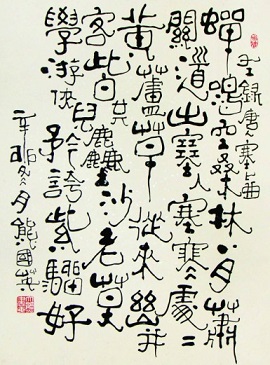 蟬鳴空桑林八月蕭
關道出塞入塞寒處〻
黃蘆草從來幽并
客皆共塵沙老莫
學游俠兒矜誇紫騮好
錄唐人塞上曲
辛卯冬月熊國英